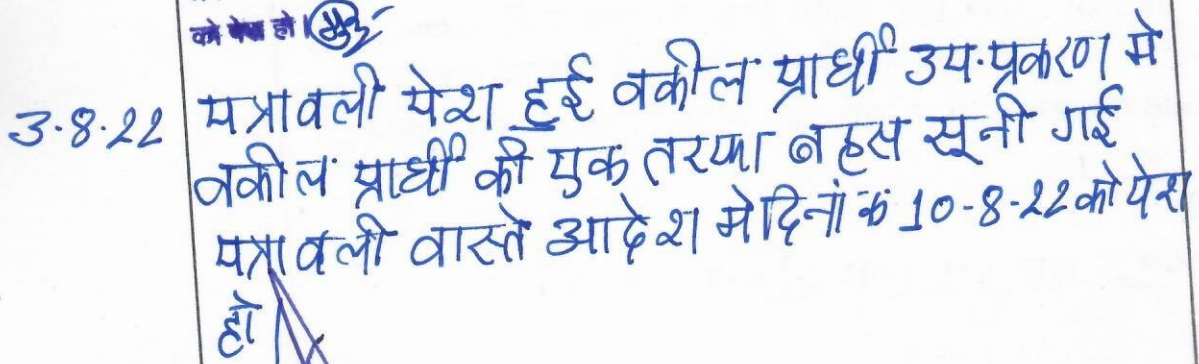 को पेश हो।
3-8-22 पत्रावली पेश हुई वकील प्रार्थी उप. प्रकरण मे
वकील प्रार्थी की एक तरफा बहस सूनी गई
पत्रावली वास्ते आदेश मे दिनांक 10-8-22 को पेश
हो